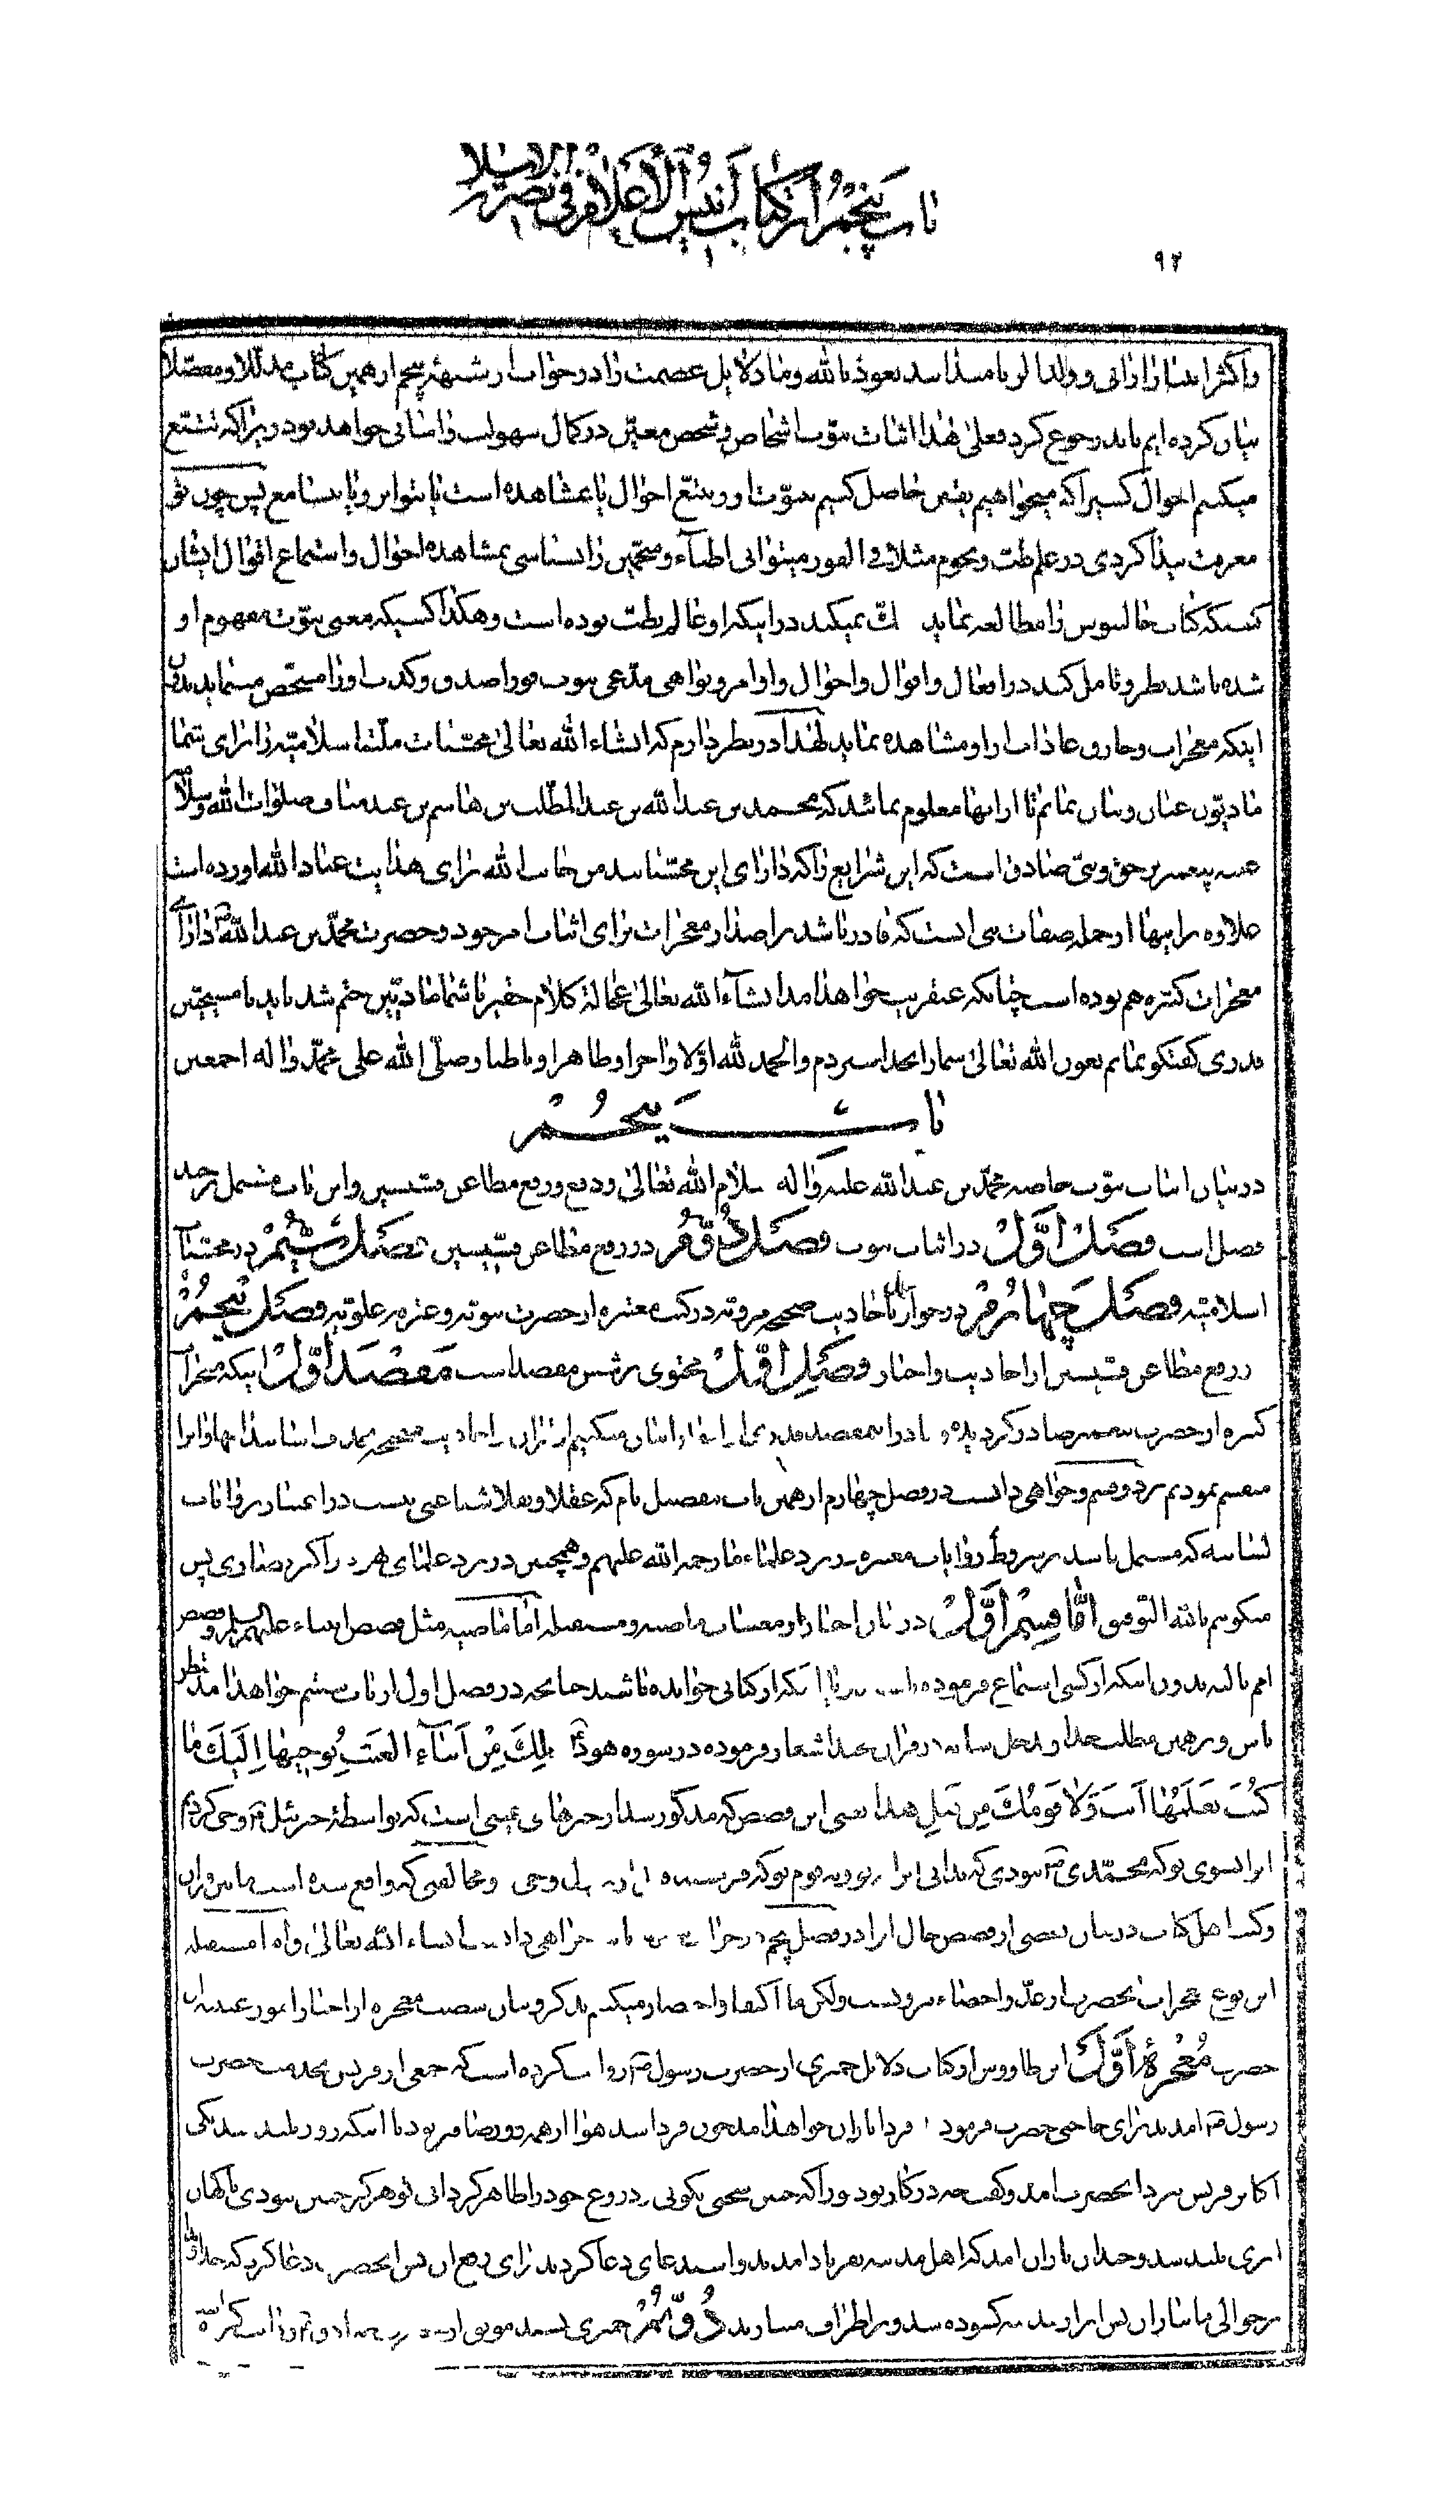 باب پنجم از کتاب انیس الأعلام فی نصرة الاسلام
۹۲
واکثر انبیا را زانی و ولد الزنا میدانند نعوذ بالله وما دلایل عصمت را در جواب از شبهه پنجم از همین کتاب مدللا و مفصلا
بیان کرده ایم باید رجوع کرد فعلی هذا اثبات نبوت اشخاص و شخص معین در کمال سهولت و اسانی خواهد بود زیرا که تتبع
میکنیم احوال کسیرا که میخواهیم یقین حاصل کنیم بنبوت او و تتبع احوال یا بمشاهده است یا بتواتر و یا بتسامع پس چون تو
معرفت پیدا کردی در علم طب و نجوم مثلا فی الفور میتوانی اطباء و منجمین را بشناسی بمشاهده احوال و استماع اقوال ایشان
کسیکه کتاب جالینوس را مطالعه نماید شک نمیکند در اینکه او عالم بطب بوده است و هکذا کسیکه معنی نبوت مفهوم او
شده باشد نظر و تامل کند در افعال و اقوال و احوال و اوامر و نواهی مدعی نبوت فورا صدق و کذب او را مشخص مینماید بدون
اینکه معجزات و خارق عادات او را مشاهده نماید لهذا در نظر دارم که انشاء الله تعالی محسنات ملت اسلامیه را برای شما
مادیون عنان و بیان نمایم تا از اینها معلوم نماید که محمد بن عبد الله بن عبد المطلب بن هاشم بن عبد مناف صلوات الله وسلامه
علیه پیغمبر بر حق و نبی صادق است که این شرایع را که دارای این محسنات اند من جانب الله برای هدایت عباد الله اورده است
علاوه بر اینها از جمله صفات نبی انست که قادر باشد بر اصدار معجزات برای اثبات امر خود و حضرت محمد بن عبد الله ص دارای
معجزات کثیره هم بوده است چنانکه عنقریب خواهد امد انشآء الله تعالی عجالة کلام حقیر با شما مادیین ختم شد باید با مسیحیین
قدری گفتگو نمایم بعون الله تعالی شما را بخدا سپردم والحمد لله اولا واخرا وظاهرا وباطنا وصلی الله علی محمد واله اجمعین
باب پنجم
در بیان اثبات نبوت خاصه محمد بن عبد الله علیه واله سلام الله تعالی و دفع و رفع مطاعن قسیسین و این باب مشتمل بر چند
فصل است فصل اول در اثبات نبوت فصل دوم در رفع مطاعن قسیسین فصل سیم در محسنات
اسلامیه فصل چهارم در جواز باحادیث صحیحه مرویه در کتب معتبره از حضرت نبویه و عترة علویه فصل پنجم
در رفع مطاعن قسیسین از احادیث و اخبار فصل اول محتوی بر شش مقصد است مقصد اول اینکه معجزات
کثیره از حضرت پیغمبر صادر گردیده و ما در این مقصد بیان میکنیم از قران و احادیث صحیحه بحذف اسانید انها و انرا
منقسم نمودیم بر دو قسم و خواهی دانست در فصل چهارم از همین باب بتفصیل تام که عقلا و نقلا شناعتی نیست در اعتبار روایات
لسانیه که مشتمل باشند بر شروط روایات معتبره در نزد علماء ما رحمة الله علیهم و همچنین در نزد علمای یهود و اکثر نصاری پس
میگوئیم بالله التوفیق اما قسم اول در بیان اخبار از مغیبات ماضیه و مستقبله اما ماضیه مثل قصص انبیاء علیهم السلام و قصص
امم بالیه بدون اینکه از کسی استماع فرموده باشند یا اینکه از کتابی خوانده باشد چنانچه در فصل اول از باب ششم خواهد امد منتظر
باش و بر همین مطلب خدا وند اشعار فرموده در سوره هود تِلكَ مِنْ اَنباءِ الغَیبِ نُوحیها اِلَیكَ ما
كُنتَ تَعلَمُها اَنتَ وَلا قَومُكَ مِن قَبلِ هذا یعنی این قصص که مذکور شد از خبرهای غیبی است که بواسطه جبرئیل وحی کردیم
انرا بسوی تو که محمدی نبودی که بدانی انرا تو و نه قوم تو و مخالفتی که واقع شده است مابین قران
و کتب اهل کتاب در بیان بعضی از قصص حال انرا در فصل پنجم خواهی دانست انشاء الله تعالی و اما مستقبله
این نوع معجزات انحضرت از عد و احصاء بیرونست ولکن ما اکتفا و اختصار میکنیم بذکر و بیان شصت معجزه از اخبار امور غیبیه ان
حضرت معجزهٔ اول ابن طاووس از کتاب دلایل حمیری از حضرت رسول ص روایت کرده است که جمعی از قریش بخدمت حضرت
رسول ص امدند برای حاجتی حضرت فرمود فردا باران خواهد امد چون فردا شد هوا از همه روز صافتر بود تا اینکه روز بلند شد یکی
اکابر قریش نزد انحضرت امد و گفت چه در کار بود ترا که چنین سخنی بگوئی و دروغ خود را ظاهر گردانی تو هرگز چنین نبودی ناگهان
ابری بلند شد و چندان باران امد که اهل مدینه بفریاد امدند و استدعای دعا کردند برای رفع ان پس انحضرت دعا کرد که خداوندا
بر حوالی ما بباران پس ابر از مدینه گشوده شد و بر اطراف میبارید دوم حمیری بسند موثق از